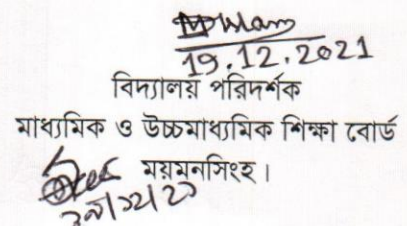 19.12.2021
বিদ্যালয় পরিদর্শক
মাধ্যমিক ও উচ্চমাধ্যমিক শিক্ষা বোর্ড
ময়মনসিংহ।